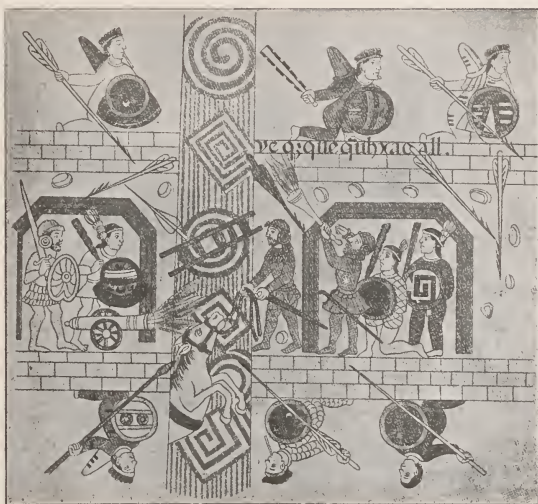 ye q;que q̃uhxac all.